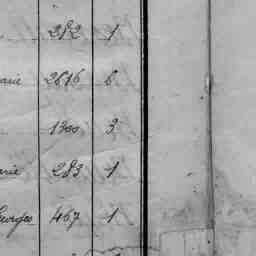 282 1
arie 2616 6
1300 3
arie 283 1
Georges 467 1